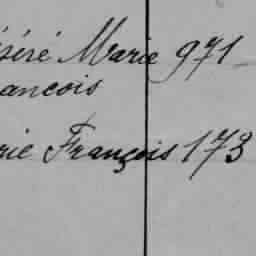 ésiré Marie 971
ancois
rie François 173